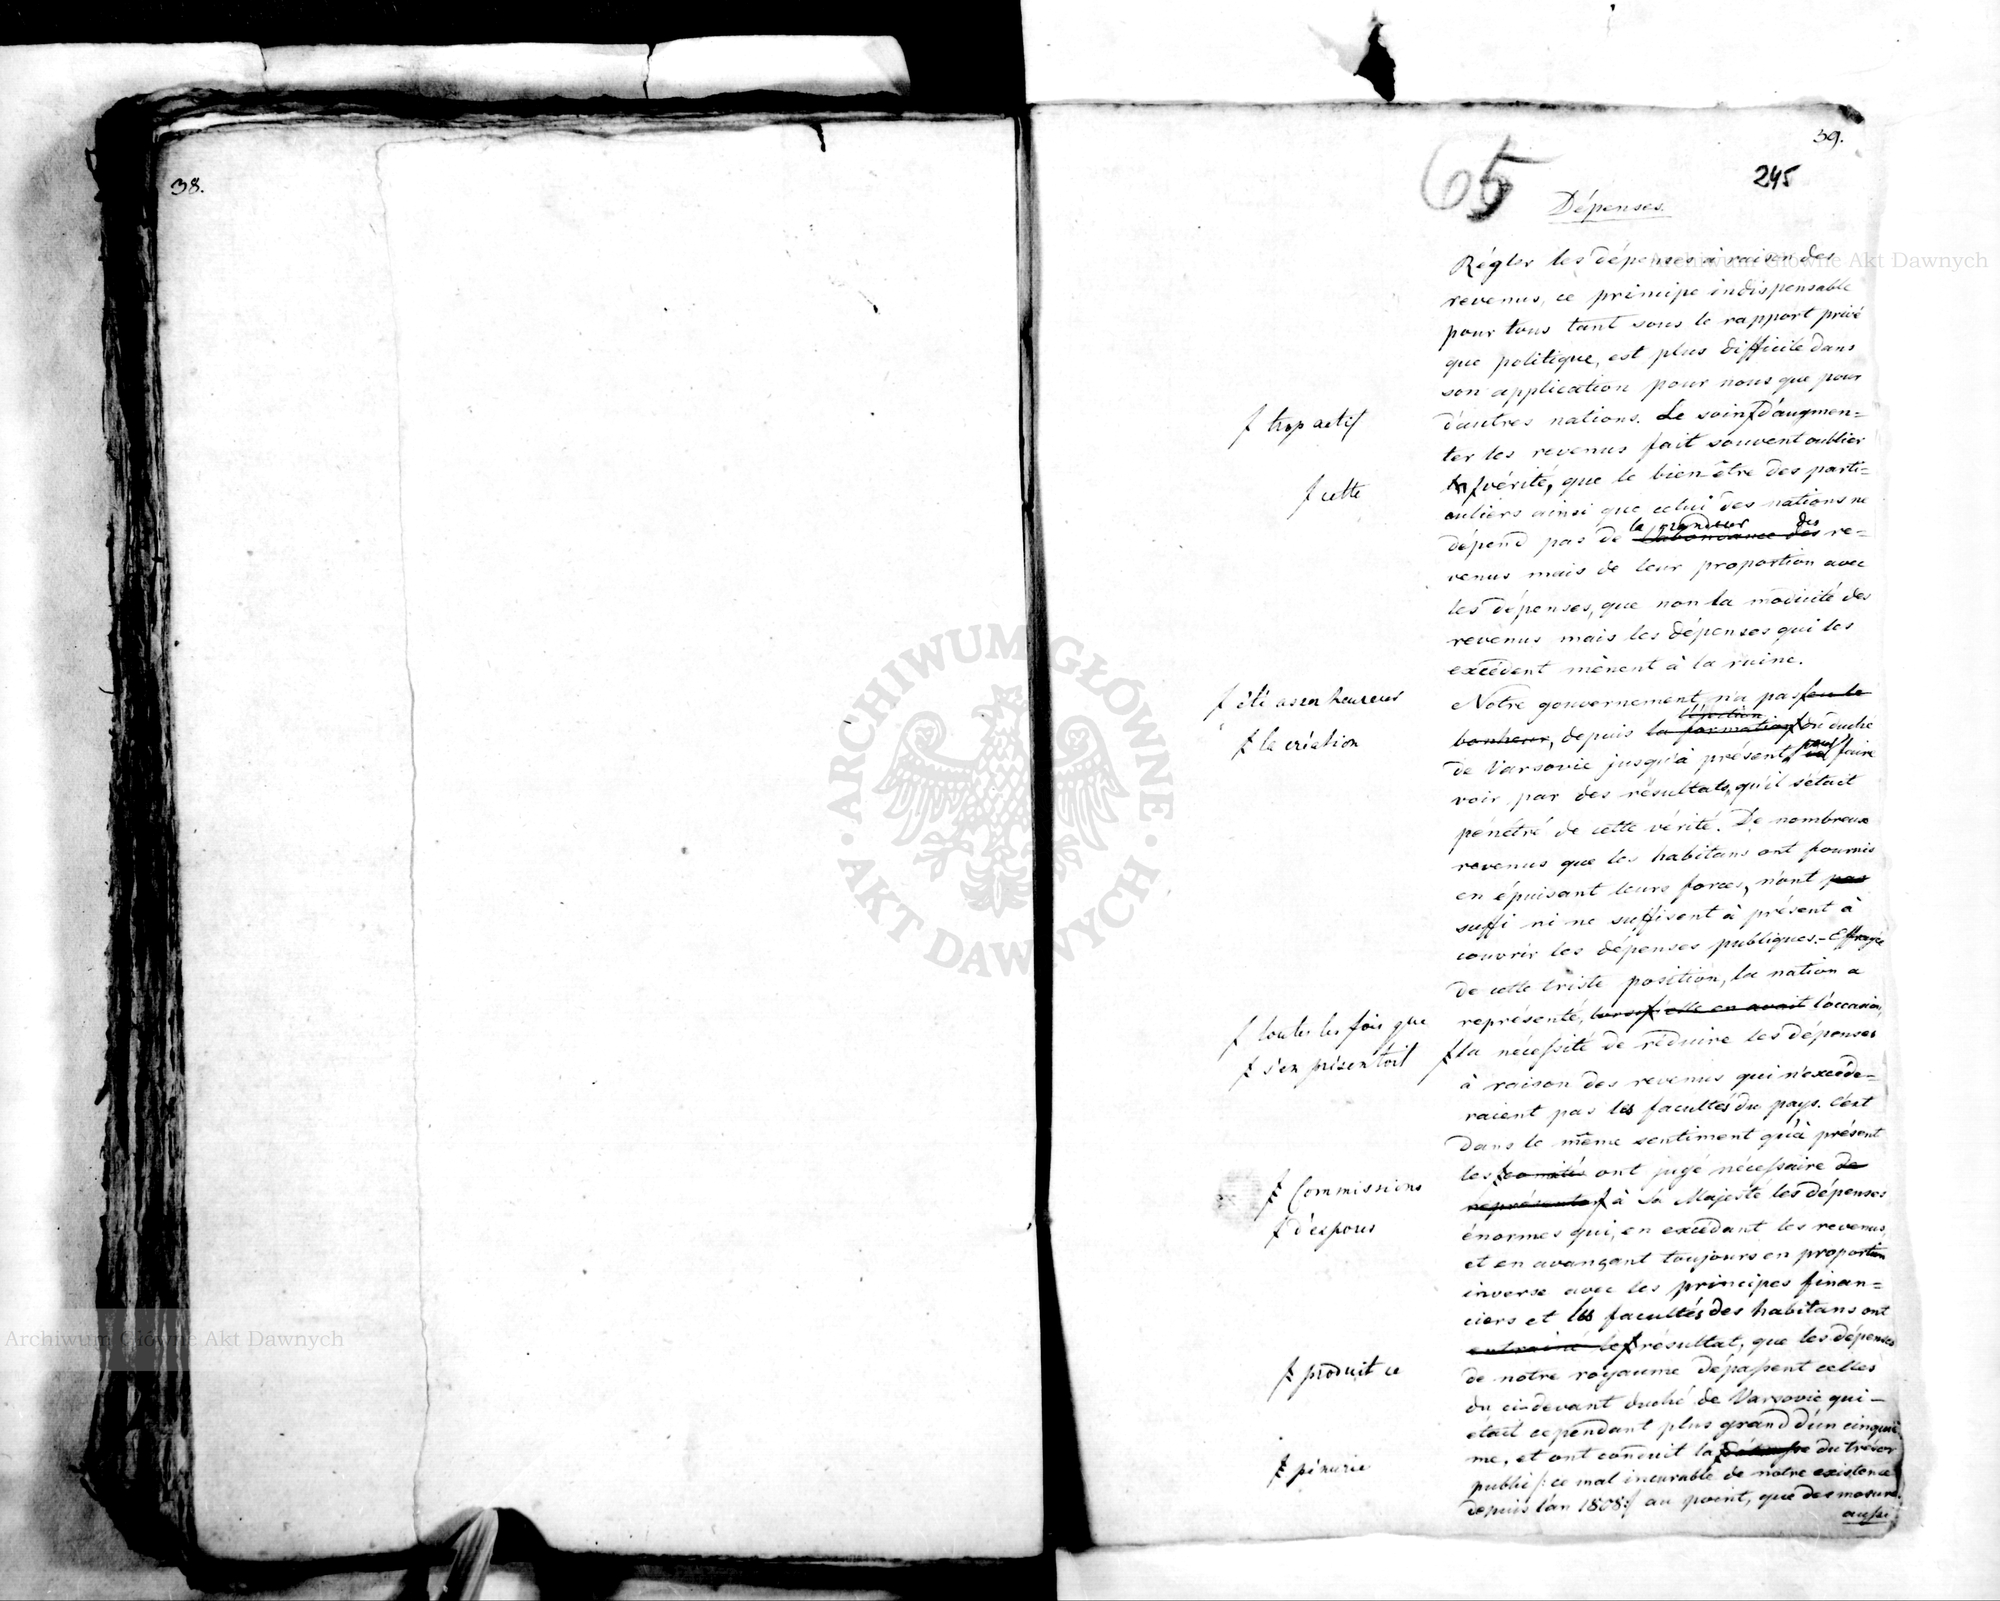 38.
39.
245
65
Dépenses.
Régler les dépenses à raison des
revenus, ce principe indispensable
pour tous tant sous le rapport privé
que politique, est plus difficile dans
son application pour nous que pour
d'autres nations. Le soin ƒ d'augmen=
ƒ trop actif
ter les revenus fait souvent oublier
ƒ vérité, que le bien-être des parti=
ƒ cette
culiers ainsi que celui des nations ne
la grandeur des
dépend pas de l'abondance des re=
venus mais de leur proportion avec
les dépenses, que non la modicité des
revenus mais les dépenses qui les
excèdent mènent à la ruine.
Notre gouvernement n'a pas ƒ eu le
ƒ été assez heureux
bonheur, depuis la formation ƒ du duché
ƒ la création
de Varsovie jusqu'à présent, pour faire
voir par des résultats, qu'il s'était
pénétré de cette vérité. De nombreux
revenus que les habitans ont fournis
en épuisant leurs forces, n'ont pas
suffi ni ne suffisent à présent à
couvrir les dépenses publiques.- Effrayée
de cette triste position, la nation a
représenté, elle en avait l'occasion,
ƒ toutes les fois que
ƒ la nécessité de réduire les dépenses
ƒ s'en présentoit
à raison des revenus qui n'excéde=
raient pas les facultés du pays. C'est
dans le même sentiment qu'à présent
les ƒ comités ont jugé nécessaire de
ƒ Commissions
représenter ƒ à Sa Majesté les dépenses
ƒ d'exposer
énormes qui, en excédant les revenus,
et en avançant toujours en proportion
inverse avec les principes finan=
ciers et les facultés des habitans ont
entrainé le ƒ résultat, que les dépenses
ƒ produit ce
de notre royaume dépassent celles
du ci-devant duché de Varsovie qui -
était cependant plus grand d'un cinquiè
me, et ont conduit la ƒ du trésor
ƒ pénurie
public /: ce mal incurable de notre existence
depuis l'an 1808 :/ au point, que des mesures
aussi
ARCHIWUM GŁÓWNE · AKT DAWNYCH ·
Archiwum Główne Akt Dawnych
Archiwum Główne Akt Dawnych